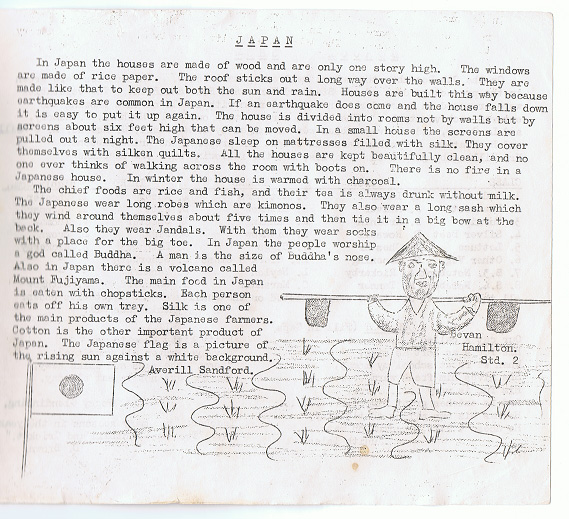 J A P A N
In Japan the houses are made of wood and are only one story high. The windows
are made of rice paper. The roof sticks out a long way over the walls. They are
made like that to keep out both the sun and rain. Houses are built this way because
earthquakes are common in Japan. If an earthquake does come and the house falls down
it is easy to put it up again. The house is divided into rooms not by walls but by
screens about six feet high that can be moved. In a small house the screens are
pulled out at night. The Japanese sleep on mattresses filled with silk. They cover
themselves with silken quilts. All the houses are kept beautifully clean, and no
one ever thinks of walking across the room with boots on. There is no fire in a
Japanese house. In winter the house is warmed with charcoal.
The chief foods are rice and fish, and their tea is always drunk without milk.
The Japanese wear long robes which are kimonos. They also wear a long sash which
they wind around themselves about five times and then tie it in a big bow at the
back. Also they wear Jandals. With them they wear socks
with a place for the big toe. In Japan the people worship
a god called Buddha. A man is the size of buddha's nose.
Also in Japan there is a volcano called
Mount Fujiyama. The main food in Japan
is eaten with chopsticks. Each person
eats off his own tray. Silk is one of
the main products of the Japanese farmers.
Cotton is the other important product of
Japan. The Japanese flag is a picture of
the rising sun against a white background.
Averill Sandford.
Devan
Hamilton.
Std. 2